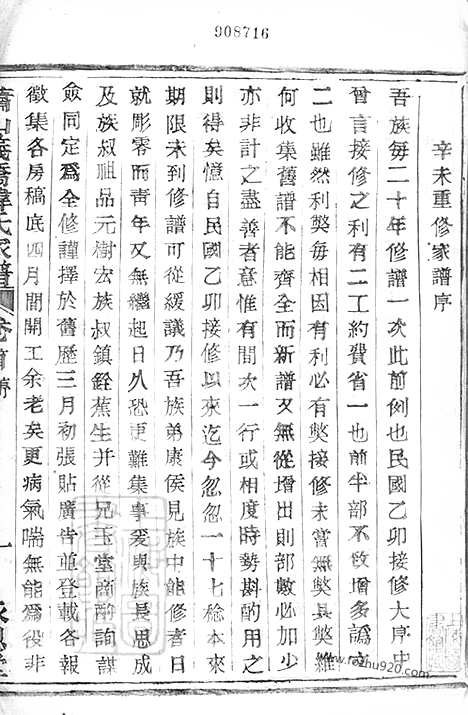 908716
辛未重修家譜序
吾族每二十年修譜一次此前例也民國乙卯接修大序中
曾言接修之利有二工約費省一也前半部不致增多譌
二也雖然利獘每相因有利必有獘接修未嘗無獘具獘維
何收集舊譜不能齊全而新譜又無從增出則部數必加少
亦非計之盡善者意惟有間次一行或相度時勢斟酌用之
則得矣憶自民國乙卯接修以來迄今忽忽一十七稔本來
期限未到修譜可從緩議乃吾族弟康侯見族中能修者日
就彫零而靑年又無繼起日久恐更難集事爰與族長思成
及族叔祖品元樹宏族叔鎮銓蕉生并從兄玉堂商酌詢謀
僉同定爲全修謹擇於舊歷三月初張貼廣告並登載各報
徵集各房稿底四月間開工余老矣更病氣喘無能爲役非
蕭山義橋韓氏家譜
卷首
一